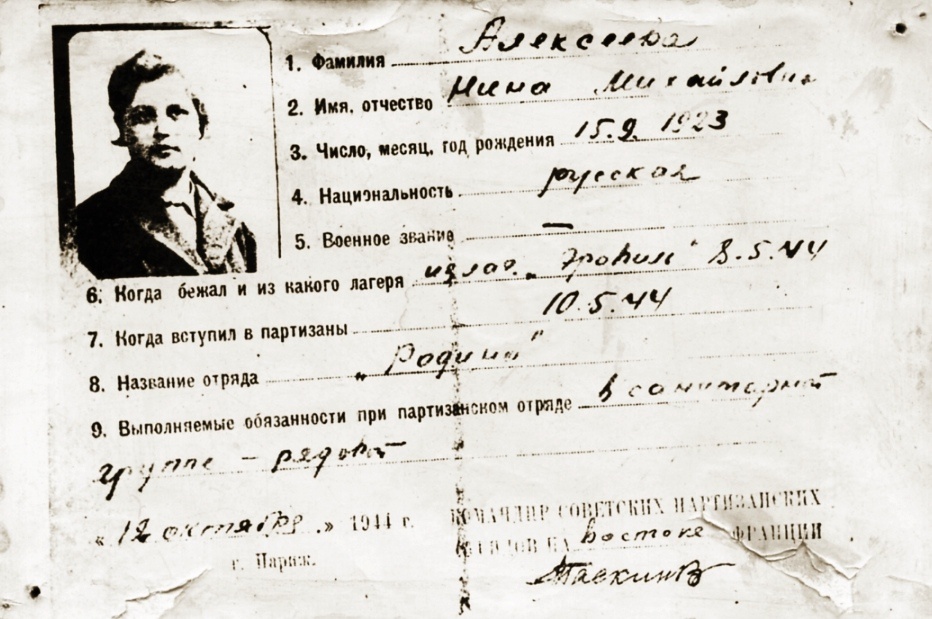 1. Фамилия Алексеева
2. Имя, отчество Нина Михайловн
3. Число, месяц, год рождения 15.9. 1923
4. Национальность русская
5. Военное звание —
6. Когда бежал и из какого лагеря из лаг. „Эровиль" 8.5.44
7. Когда вступил в партизаны 10.5.44
8. Название отряда „Родина"
9. Выполняемые обязанности при партизанском отряде в санитарной
группе - рядовой
« 12 октября » 1944 г.
г. Париж.
КОМАНДИР СОВЕТСКИХ ПАРТИЗАНСКИХ
НА Востоке ФРАНЦИИ
Таскинов